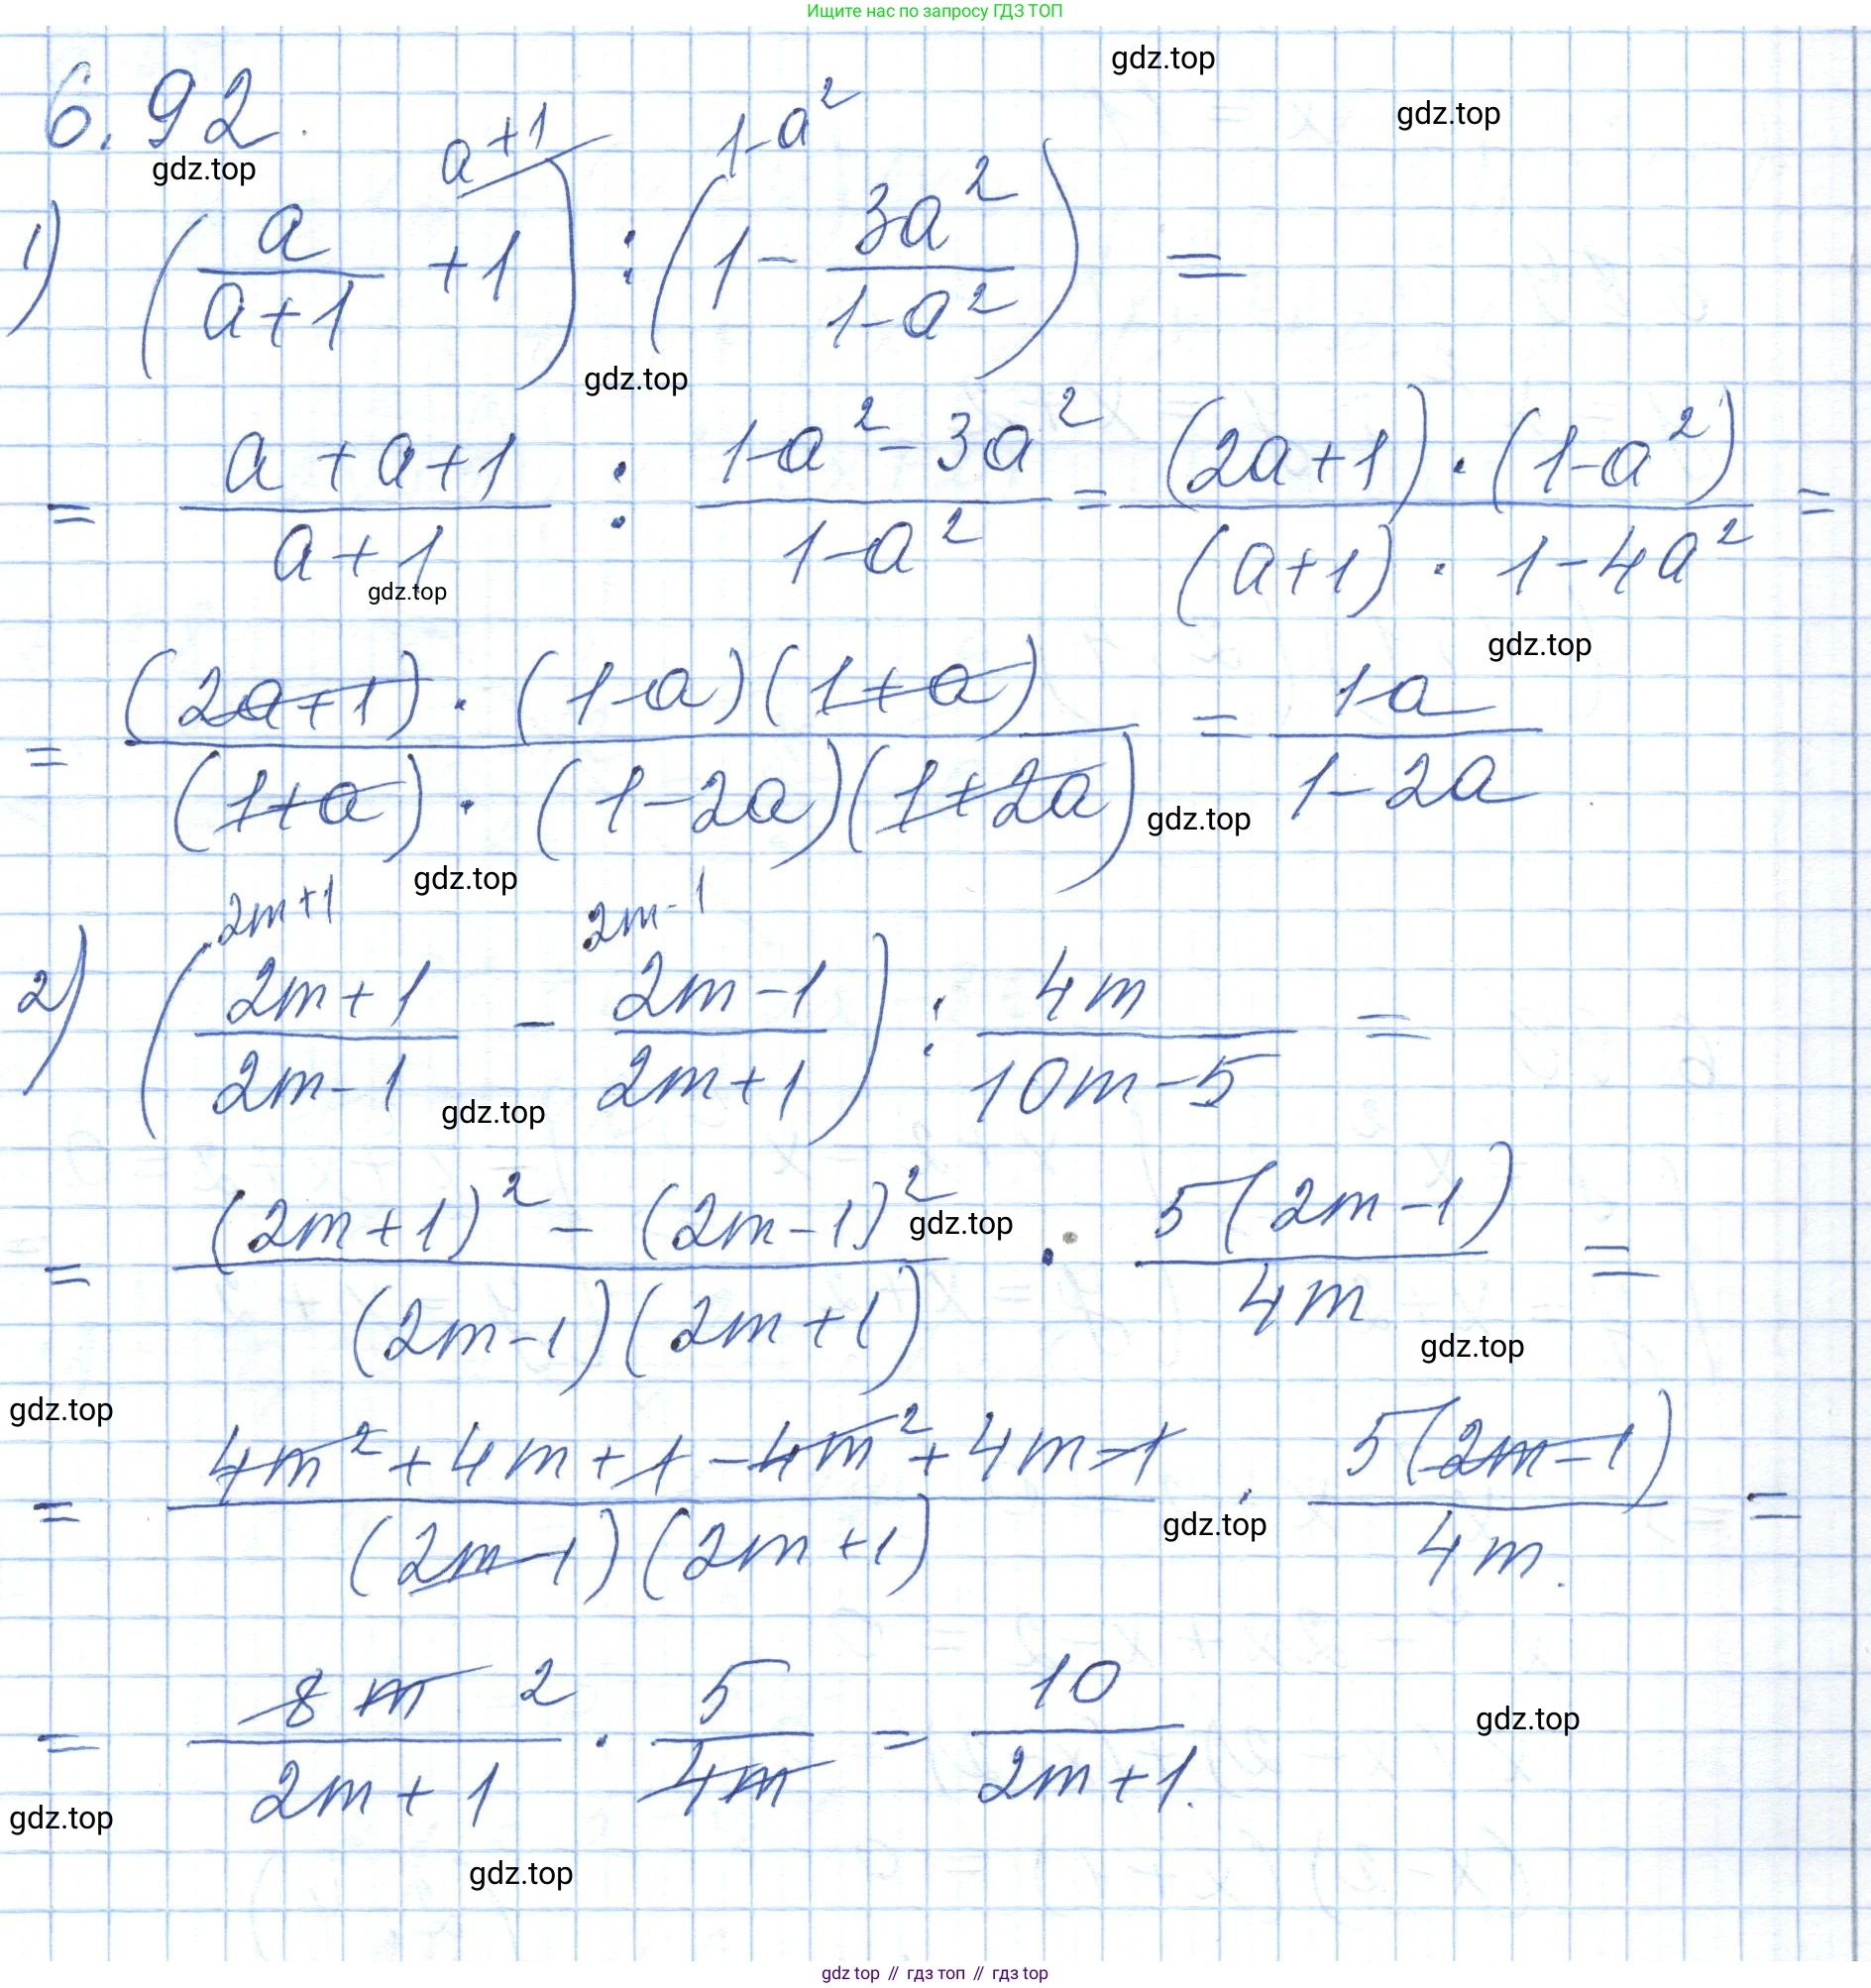 Ищите нас по запросу ГДЗ ТОП
gdz.top
gdz.top
6.92.
gdz.top
a+1 1-a²
1) (a/(a+1) + 1) : (1 - 3a²/(1-a²)) =
gdz.top
= (a+a+1)/(a+1) : (1-a²-3a²)/(1-a²) = ((2a+1)·(1-a²))/((a+1)·1-4a²) =
gdz.top
gdz.top
= ((2a+1)·(1-a)(1+a))/((1+a)·(1-2a)(1+2a)) = (1-a)/(1-2a)
gdz.top
gdz.top
2m+1 2m-1
2) ((2m+1)/(2m-1) - (2m-1)/(2m+1)) : 4m/(10m-5) =
gdz.top
= ((2m+1)² - (2m-1)²)/((2m-1)(2m+1)) · 5(2m-1)/4m =
gdz.top
gdz.top
gdz.top
= (4m²+4m+1-4m²+4m-1)/((2m-1)(2m+1)) · 5(2m-1)/4m. =
gdz.top
= 8m 2/(2m+1) · 5/4m = 10/(2m+1).
gdz.top
gdz.top
gdz.top
gdz top // гдз топ // гдз top